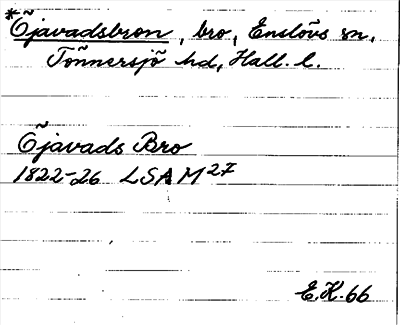 *Öjavadsbron, bro, Enslövs sn,
Tönnersjö hd, Hall. l.
Öjavads Bro
1822-26 LSA M 27
E.K. 66